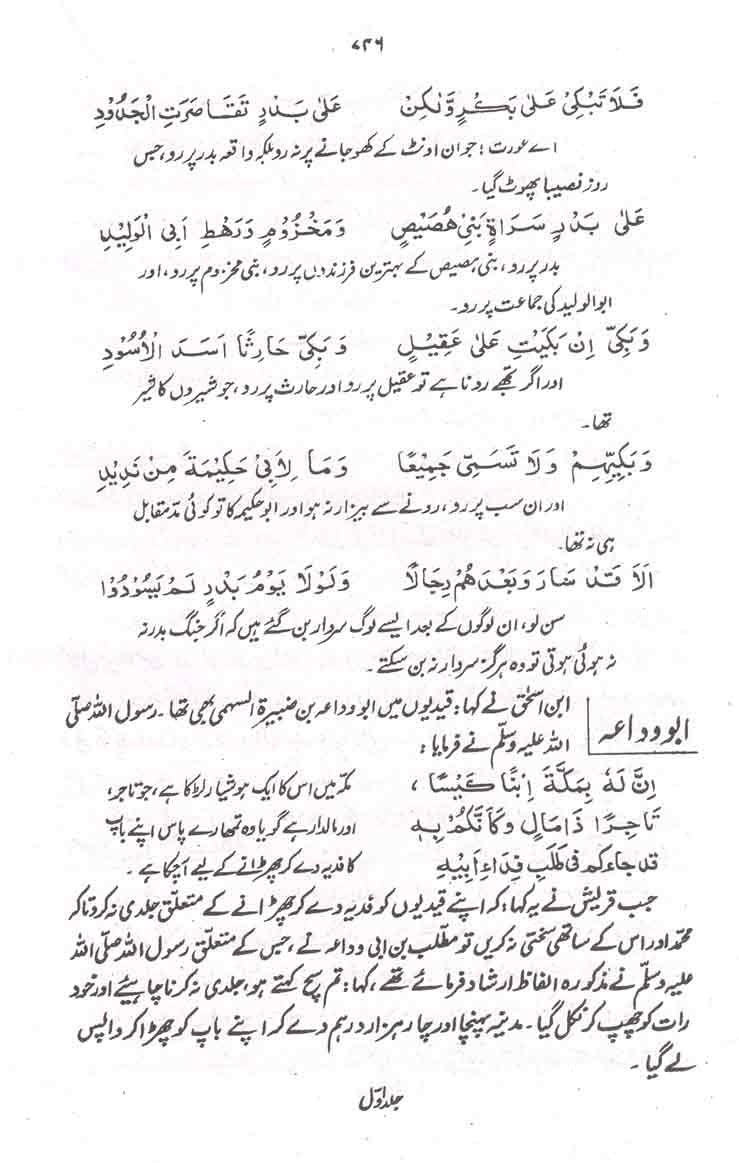 ۷۴۶
فَلَا تَبْكِیْ عَلیٰ بَكْرٍ وَّلٰكِنْ عَلیٰ بَدْرٍ تَقَاصَرَتِ الْجُدُوْدِ
اے عورت ! جوان اونٹ کے کھو جانے پر نہ رو بلکہ واقعہ بدر پر رو، جس
روز نصیبا پھوٹ گیا۔
عَلیٰ بَدْرٍ سَرَاةٍ بَنِیْ هُصَیْصٍ وَمَخْزُوْمٍ وَرَهْطِ اَبِی الْوَلِیْدِ
بدر پر رو، بنی ہصیص کے بہترین فرزندوں پر رو، بنی مخزوم پر رو، اور
ابوالولید کی جماعت پر رو۔
وَبَكِّیْ اِنْ بَكَیْتِ عَلیٰ عَقِیْلٍ وَبَكِّیْ حَارِثًا اَسَدَ الْاُسُوْدِ
اور اگر تجھے رونا ہے تو عقیل پر رو اور حارث پر رو، جو شیروں کا شیر
تھا۔
وَبَكِّیْهِمْ وَلَا تَسَمِیْ جَمِیْعًا وَمَا لِاَبِیْ حَكِیْمَةَ مِنْ نَدِیْدِ
اور ان سب پر رو، رونے سے بیزار نہ ہو اور ابو حکیمہ کا تو کوئی مدّ مقابل
ہی نہ تھا۔
اَلَا قَدْ سَارَ وَبَعْدَ هُمْ رِجَالًا وَلَوْلَا یَوْمُ بَدْرٍ لَمْ یَسُوْدُوْا
سن لو، ان لوگوں کے بعد ایسے لوگ سردار بن گئے ہیں کہ اگر جنگ بدر نہ
نہ ہوئی ہوتی تو وہ ہرگز سردار نہ بن سکتے۔
ابو وداعہ
ابن اسحٰق نے کہا : قیدیوں میں ابو وداعہ بن ضبیرة السہمی بھی تھا۔ رسول اللہ صلّی
اللہ علیہ وسلّم نے فرمایا :
اِنَّ لَهٗ بِمَكَّةَ اِبْنًا كَیْسًا ، مکّہ میں اس کا ایک ہوشیار لڑکا ہے، جو تاجر،
تَاجِرًا ذَامَالٍ وَكَاَنَّكُمْ بِهٖ اور مالدار ہے گویا وہ تمھارے پاس اپنے باپ
قد جاءكم فی طَلَبِ فِدَاءِ اَبِیْهِ کا فدیہ دے کر چھڑانے کے لیے آچکا ہے۔
جب قریش نے یہ کہا : کہ اپنے قیدیوں کو فدیہ دے کر چھڑانے کے متعلق جلدی نہ کرو تاکہ
محمّد اور اس کے ساتھی سختی نہ کریں تو مطّلب بن ابی وداعہ نے، جس کے متعلق رسول اللہ صلّی اللہ
علیہ وسلّم نے مذکورہ الفاظ ارشاد فرمائے تھے، کہا : تم سچ کہتے ہو، جلدی نہ کرنا چاہیئے اور خود
رات کو چھپ کر نکل گیا۔ مدینہ پہنچا اور چار ہزار درہم دے کر اپنے باپ کو چھڑا کر واپس
لے گیا۔
جلد اوّل